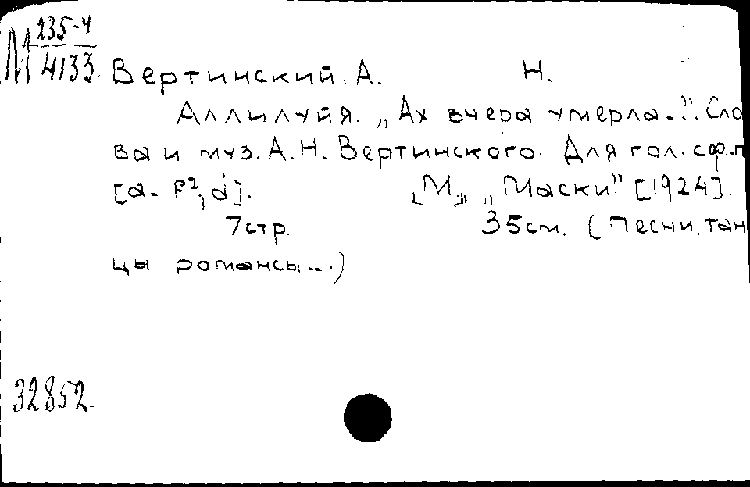 М 235-4
4133
Вертинский А. Н.
Аллилуйя. „Ах вчера умерла..." Сло
ва и муз. А. Н. Вертинского. Для гол. с ф.п
[a - F², d]. [М], „Маски" [1924].
7 стр. 35 см. (Песни, тан
цы романсы...)
32852.